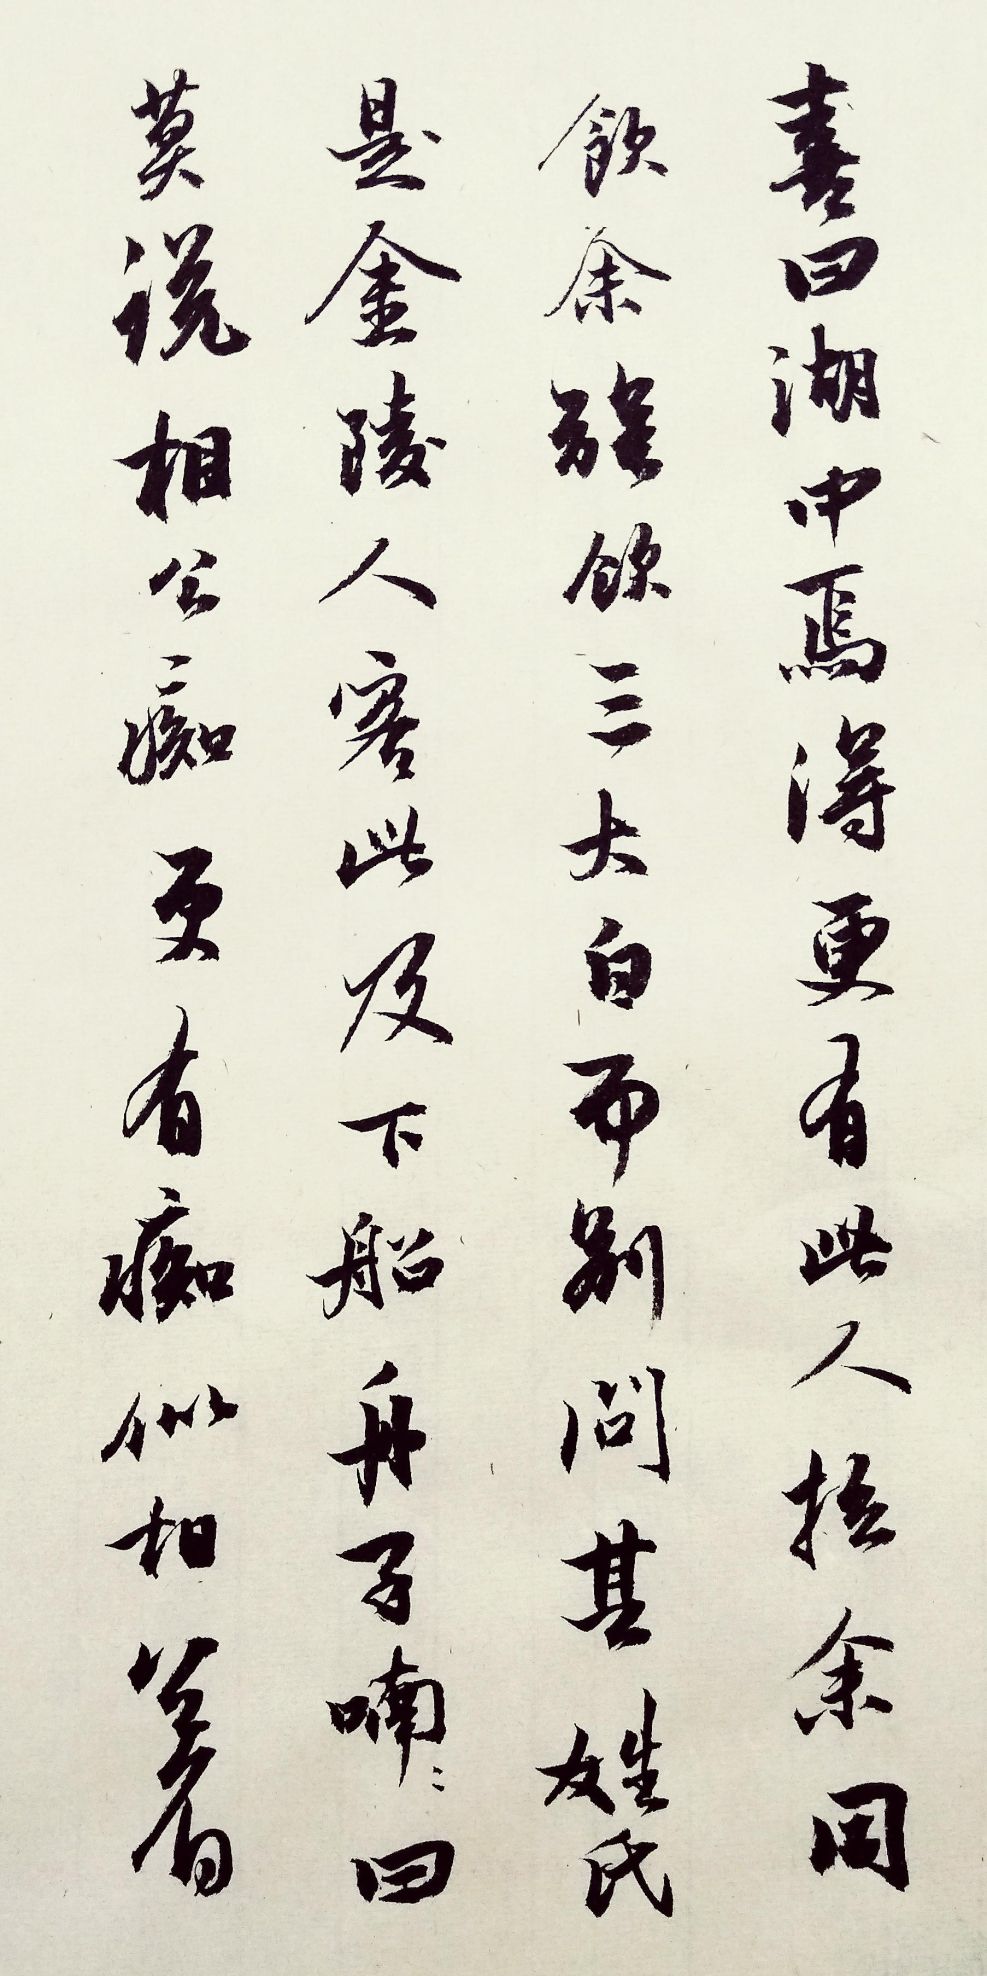 喜曰湖中焉得更有此人拉余同
飲余強飲三大白而別問其姓氏
是金陵人客此及下船舟子喃〻曰
莫说相公痴更有痴似相公者